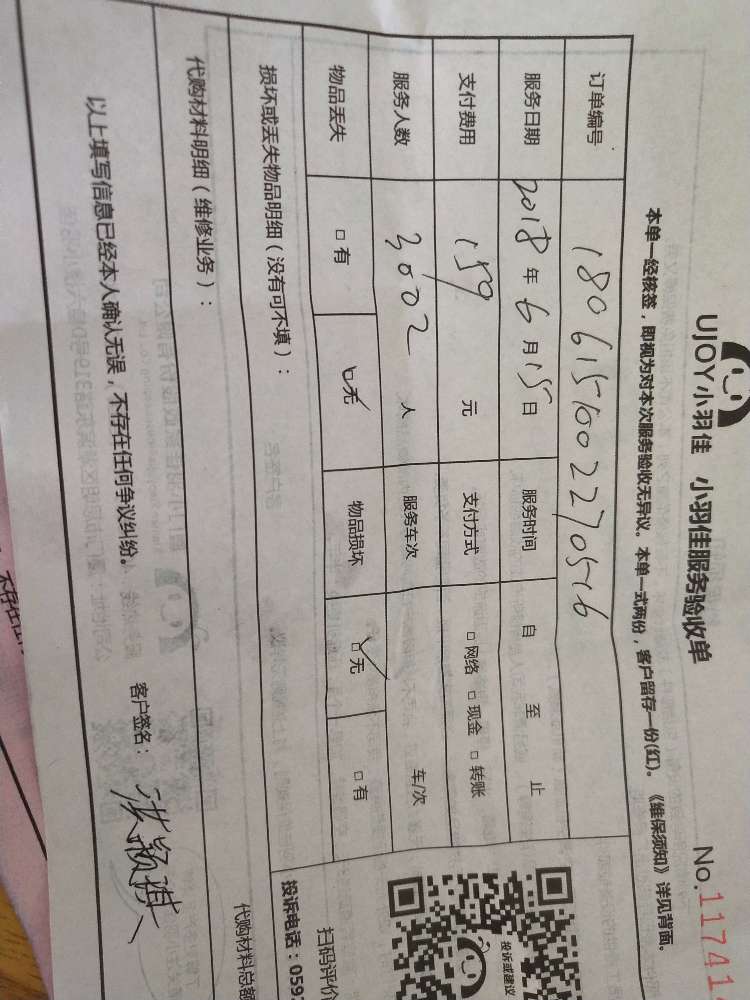 UJOY小羽佳 小羽佳服务验收单 No.117414
本单一经核签，即视为对本次服务验收无异议。本单一式两份，客户留存一份(红)。《维保须知》详见背面。
订单编号 1806151002270516
服务日期 2018年6月15日 服务时间 自 至 止
支付费用 159 元 支付方式 □网络 □现金 □转账
服务人数 人 服务车次 车/次
物品丢失 □有 □无 物品损坏 □无 □有
损坏或丢失物品明细（没有可不填）：
代购材料明细（维修业务）：
代购材料总额
以上填写信息已经本人确认无误，不存在任何争议纠纷。
客户签名：
投诉或建议
扫码评价
投诉电话：059
不存在任